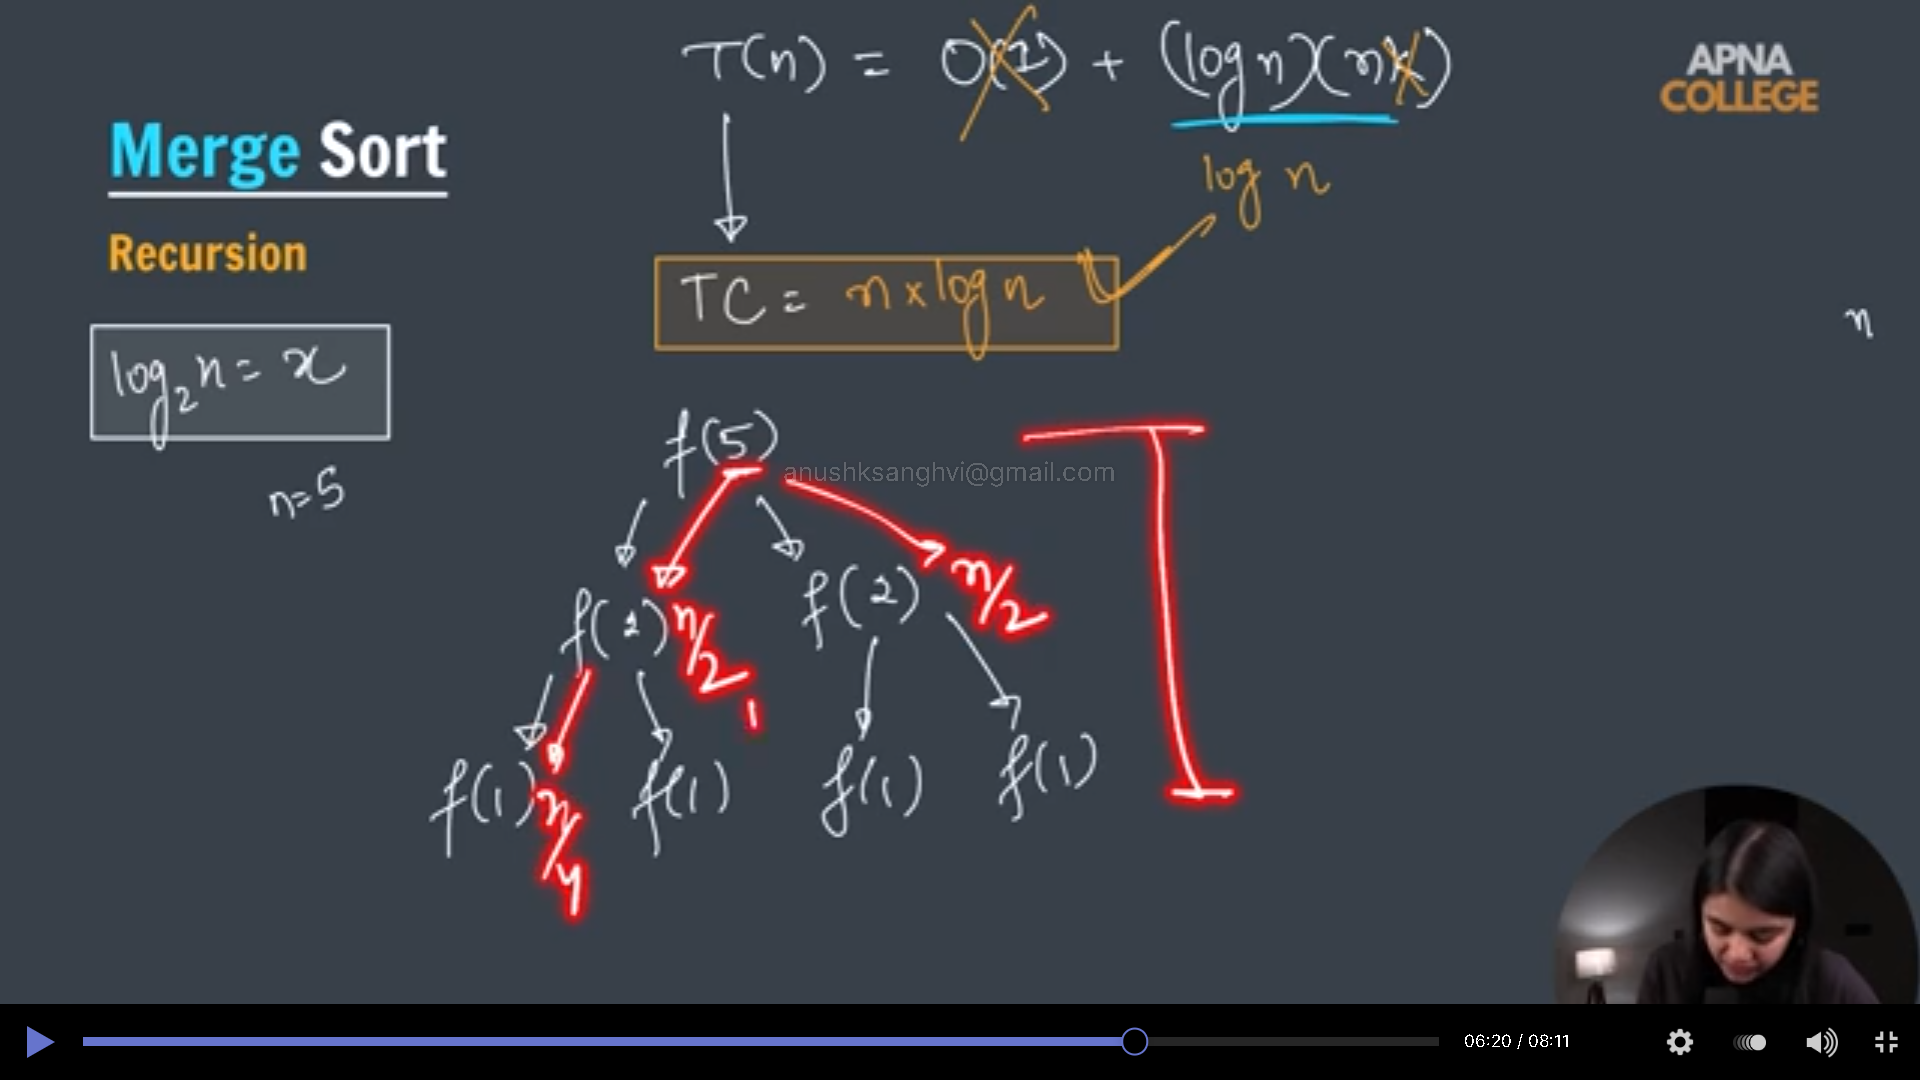 T(n) = O(1) + (log n)(nk)
APNA
COLLEGE
Merge Sort
log n
Recursion
TC = n x log n
n
log₂n = x
f(5)
anushksanghvi@gmail.com
n=5
f(2) n/2
f(2) n/2
1
f(1) n/4
f(1)
f(1)
f(1)
06:20 / 08:11